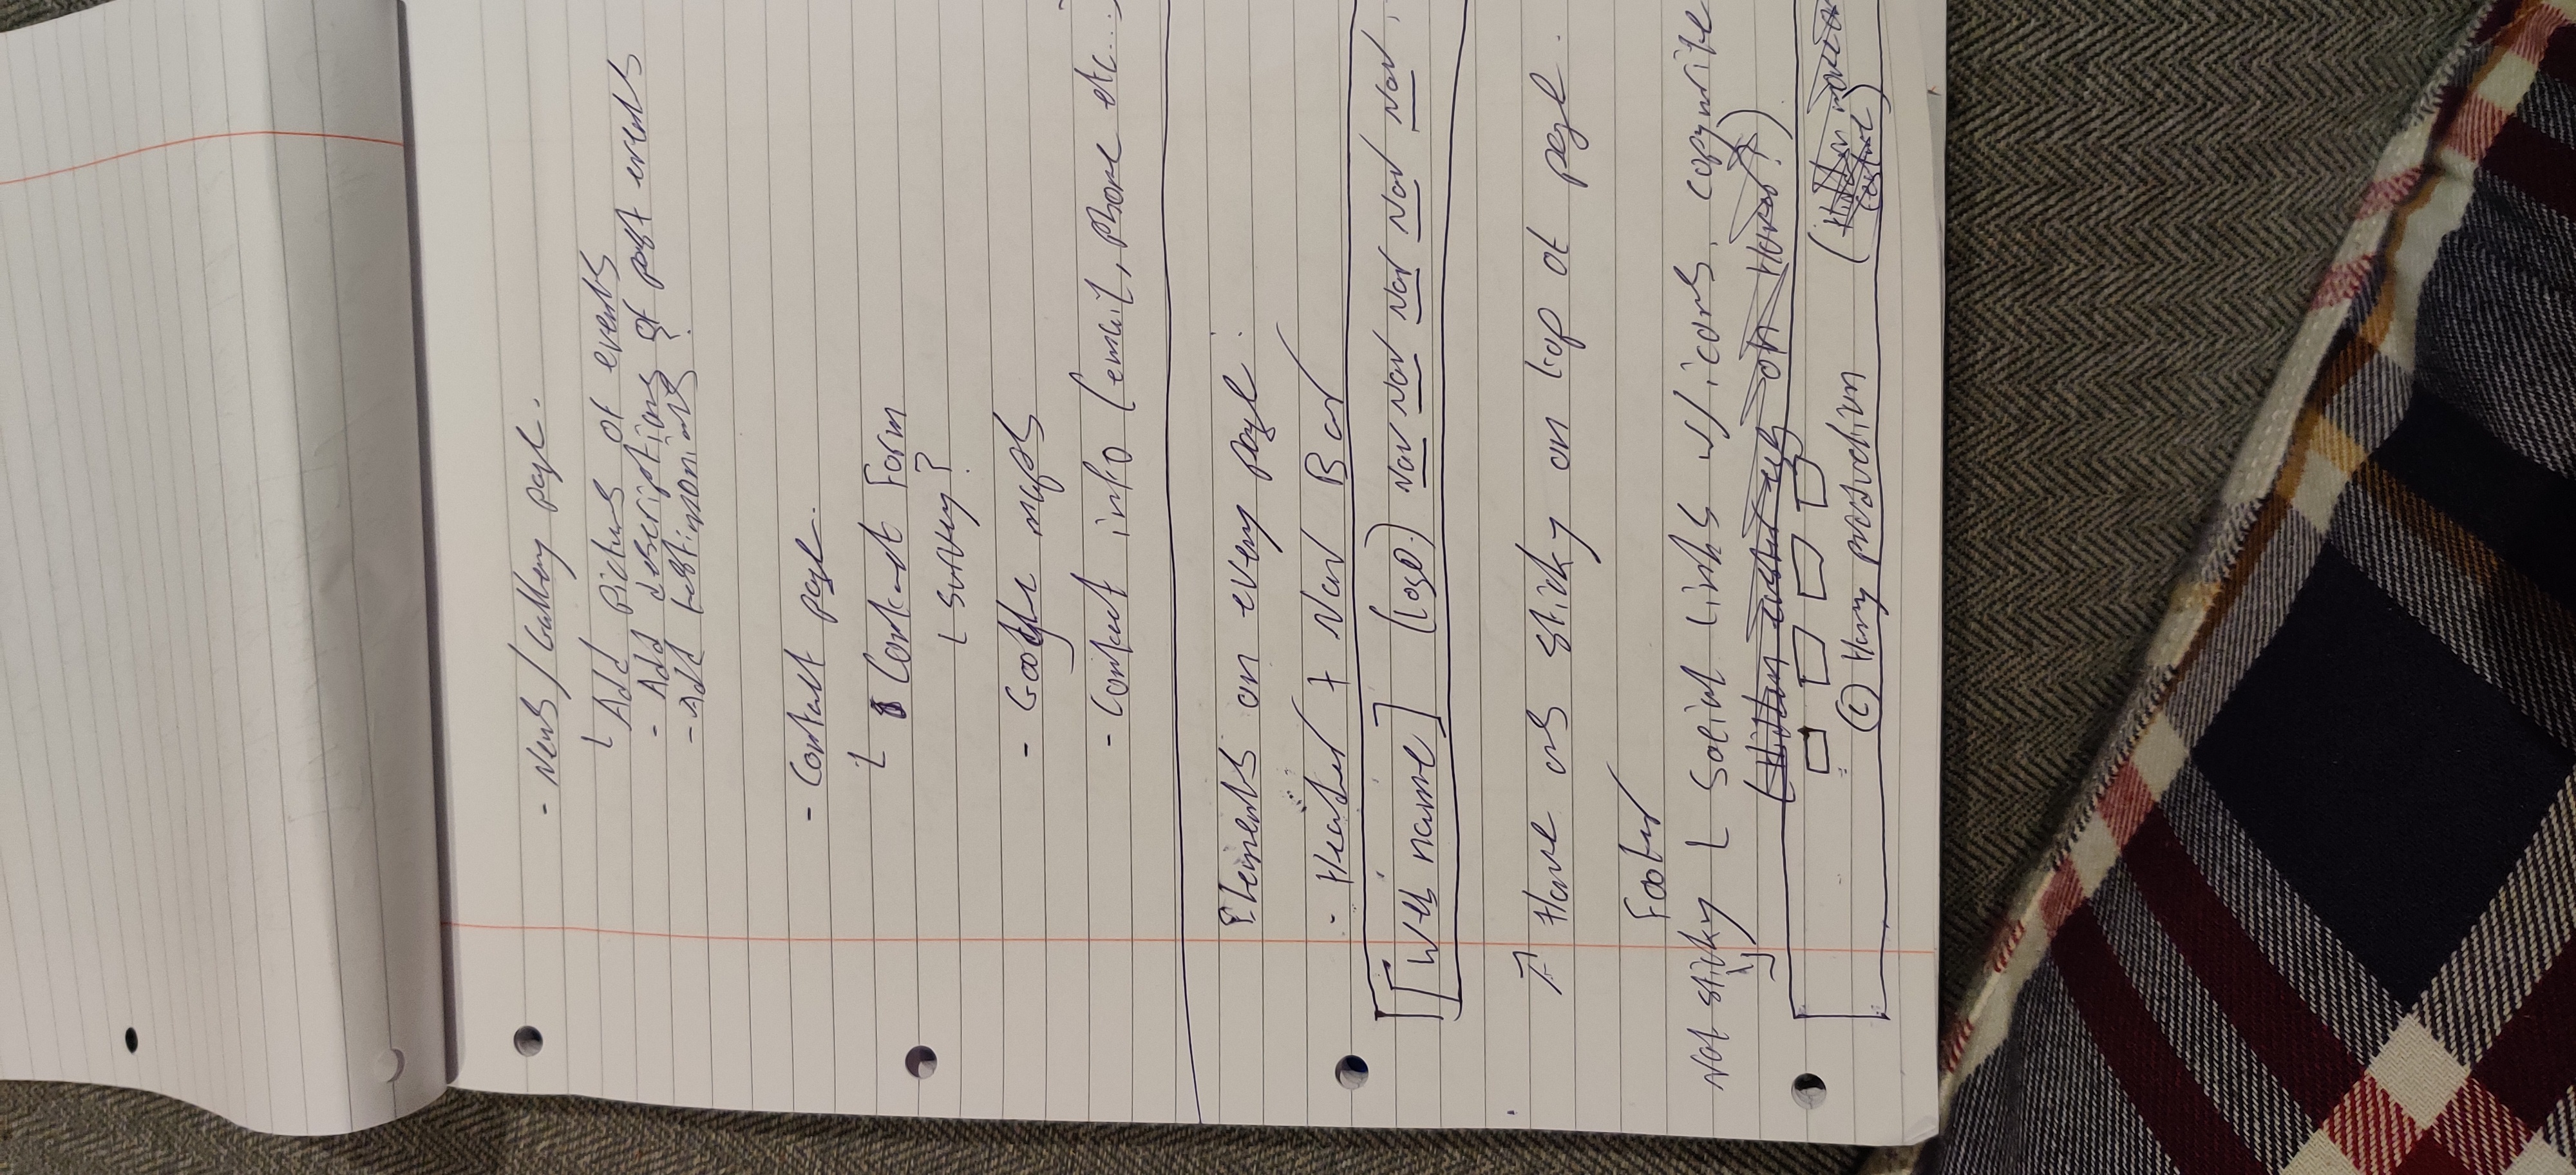 - News/Gallery page.
└ Add pictures of events
- Add descriptions of past events
- Add testimonials?
- Contact page.
└ Contact Form
└ survey?
- Google maps
- Contact info (email, phone etc...)
Elements on every page:
- Header + Nav Bar
[Web name] (logo) Nav Nav Nav Nav Nav
↗ Have as sticky on top of page.
Footer
Not sticky └ Social Links w/icons, copywrite
(Hidden easter egg on Hover?)
© Harry production (Hidden